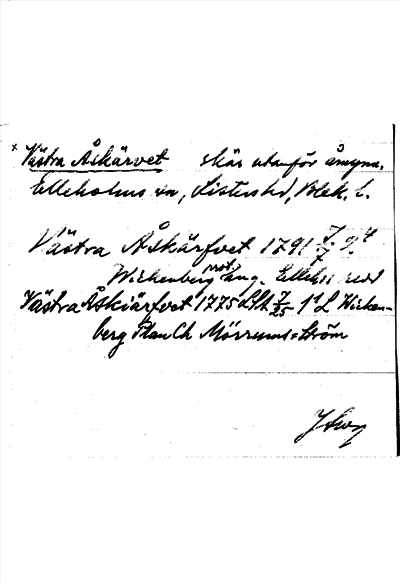 x Västra Åskärvet skär utanför åmynn.
Elleholms sn, Listers hd, Blek. l.
Västra Åskärfvet 1791
Wirkenberg ang. Elleh:s
Västra Åskiärfvet 1775 LSA 1:1 L Wirken-
berg Plan Ch Mörrums=Ström